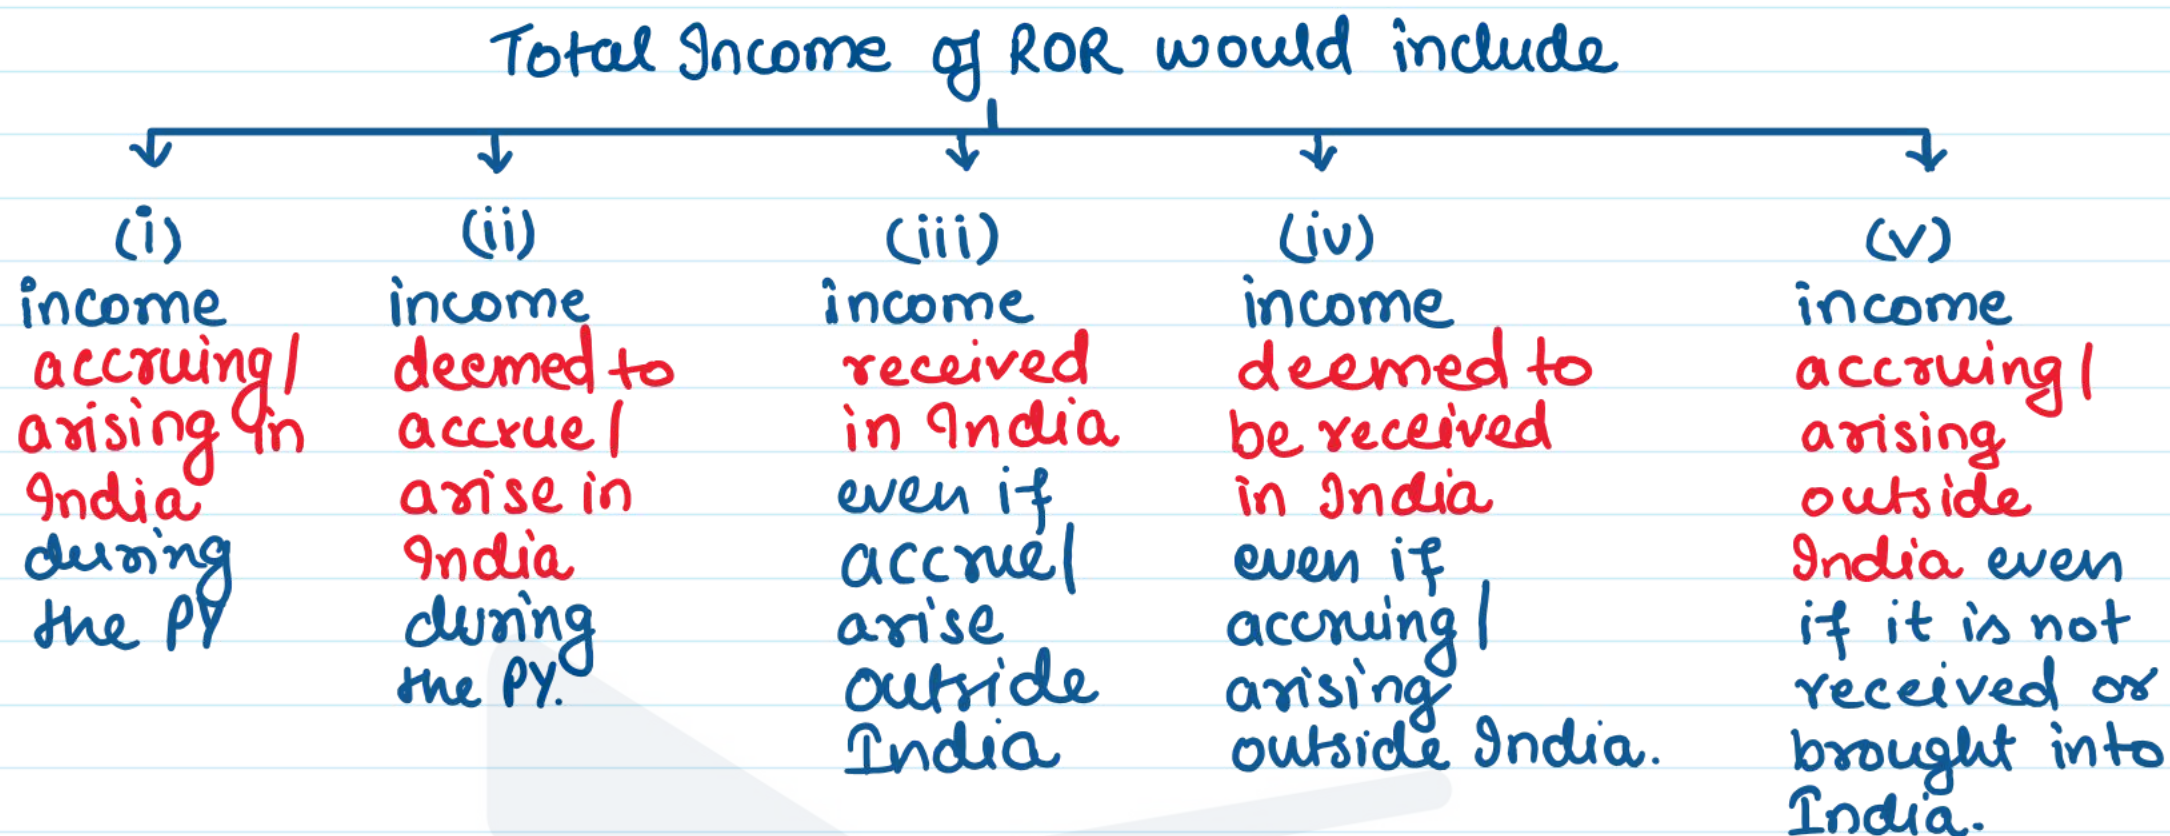 Total Income of ROR would include
(i)
income
accruing/
arising in
India
during
the PY
(ii)
income
deemed to
accrue/
arise in
India
during
the PY.
(iii)
income
received
in India
even if
accrue/
arise
outside
India
(iv)
income
deemed to
be received
in India
even if
accruing/
arising
outside India.
(v)
income
accruing/
arising
outside
India even
if it is not
received or
brought into
India.